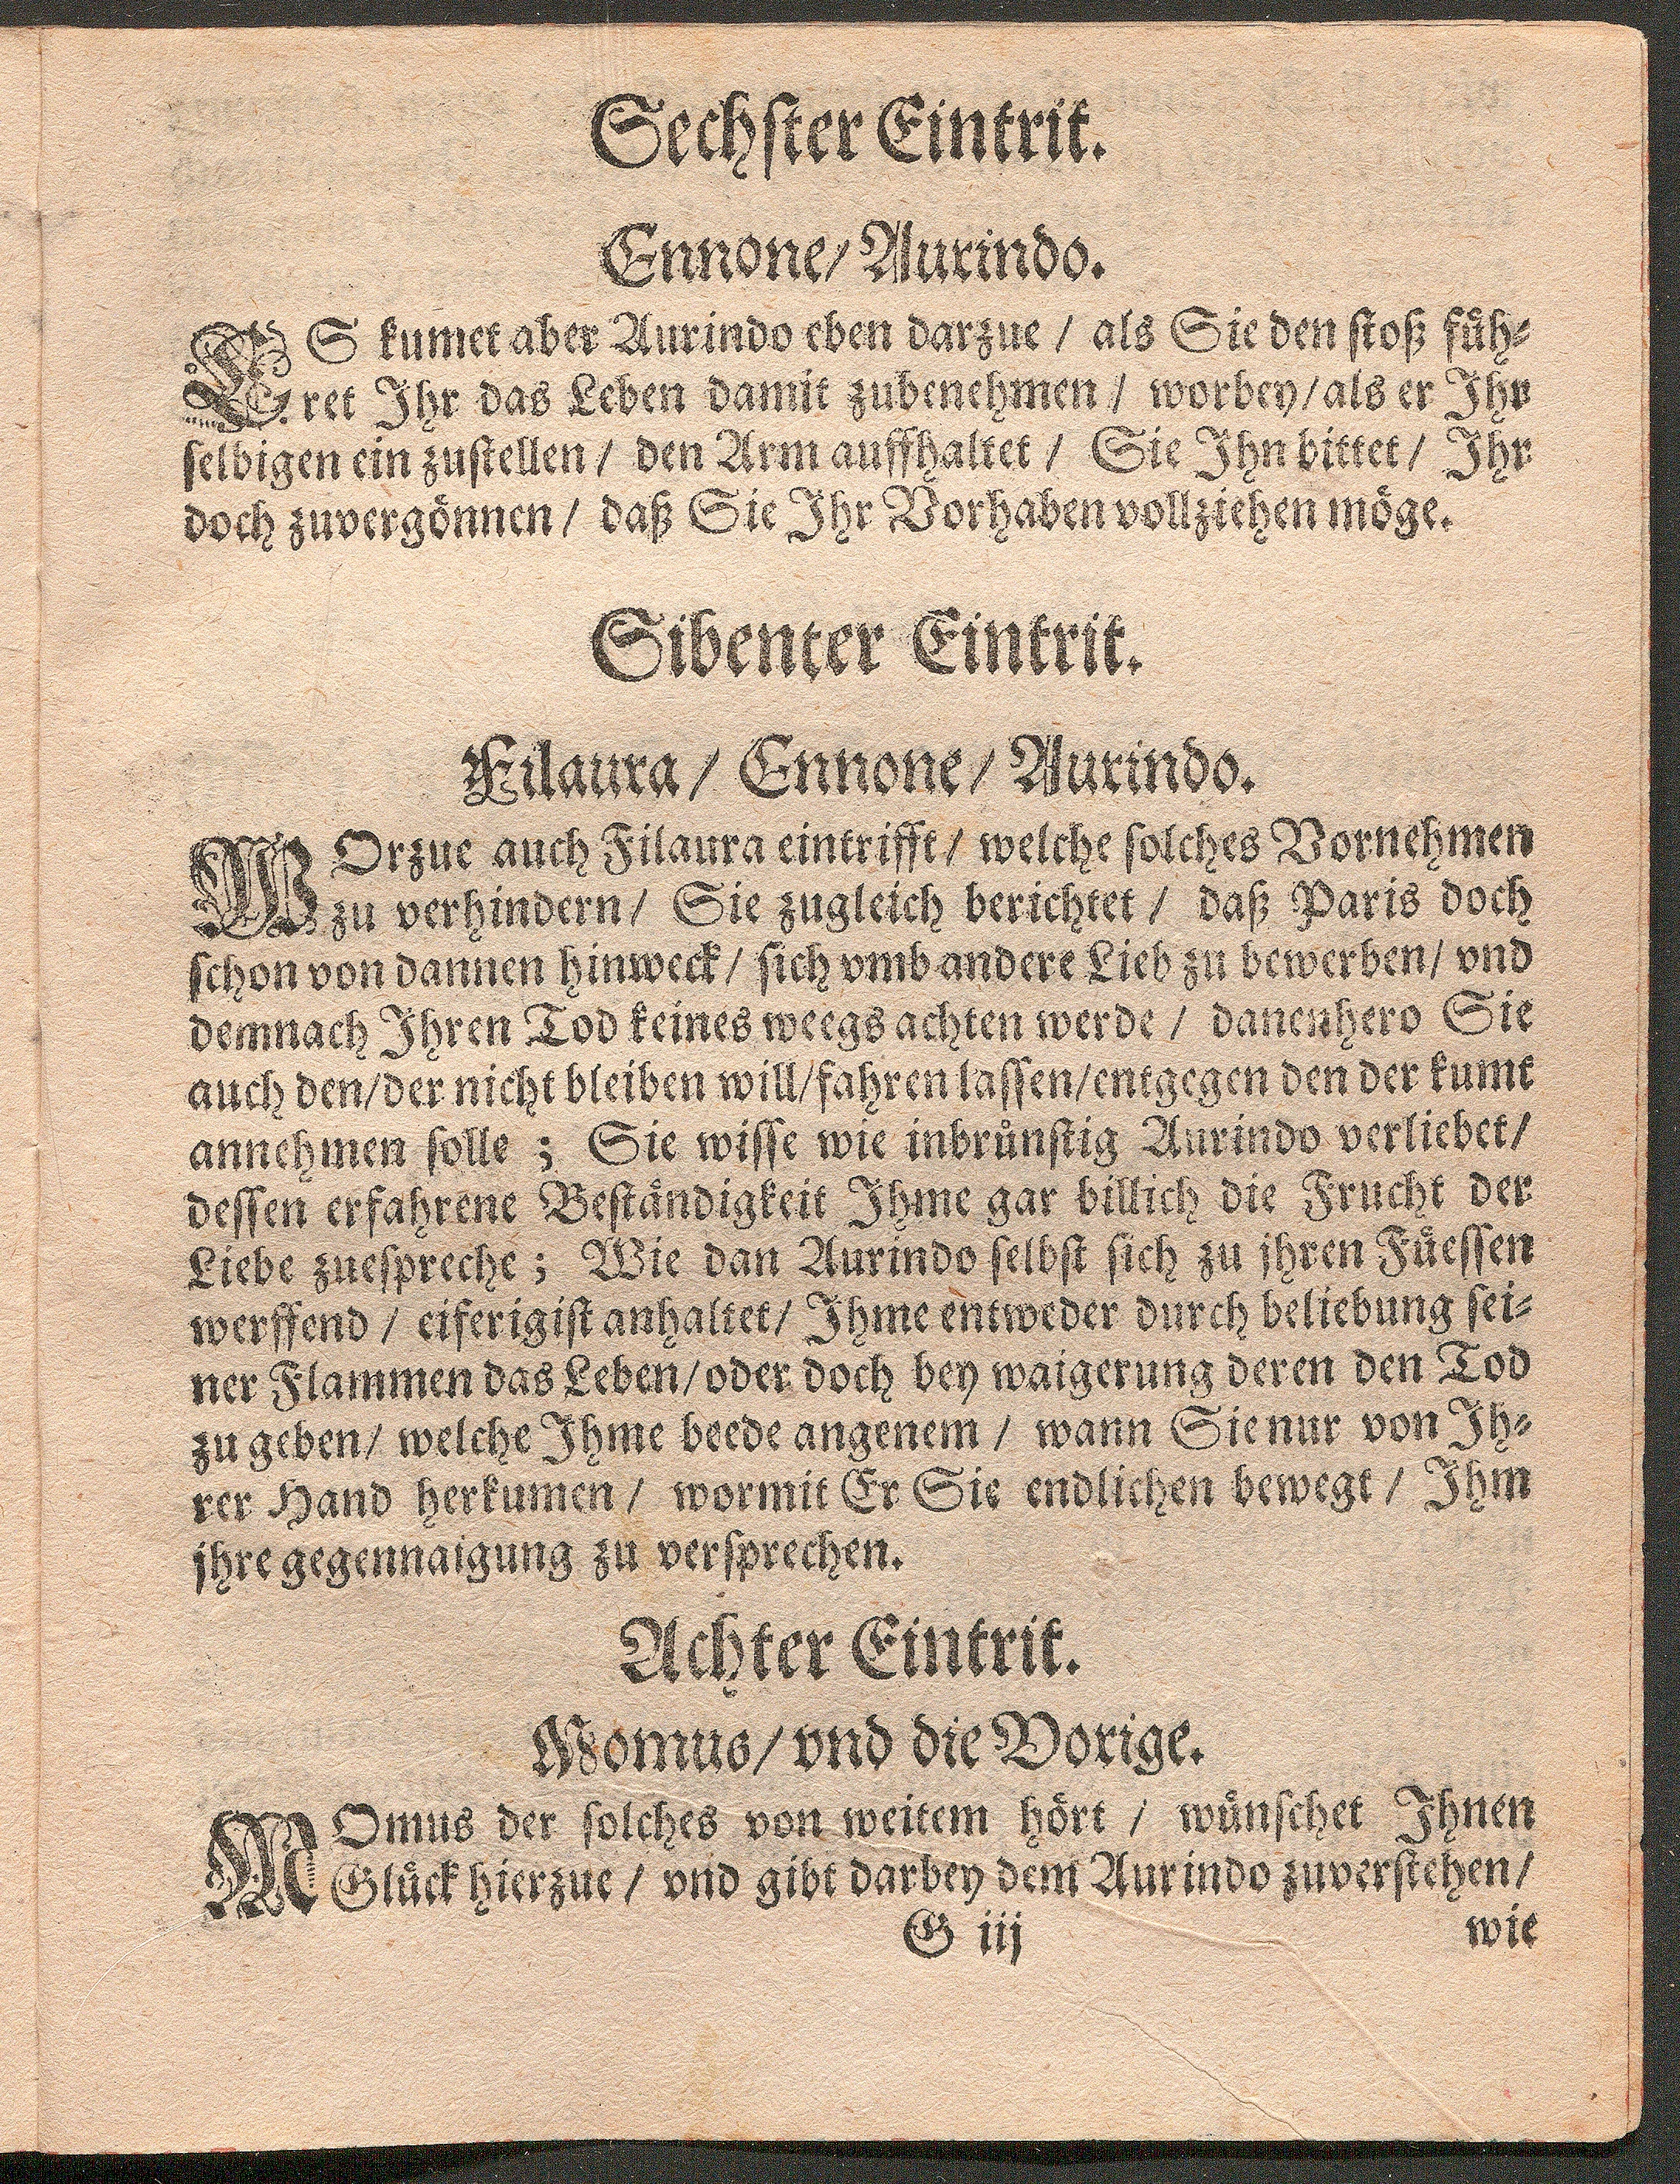 Sechster Eintrit.
Ennone/ Aurindo.
ES kumet aber Aurindo eben darzue / als Sie den stoß füh-
ret Ihr das Leben damit zubenehmen / worbey/als er Ihr
selbigen ein zustellen / den Arm auffhaltet / Sie Ihn bittet / Ihr
doch zuvergönnen / daß Sie Ihr Vorhaben vollziehen möge.
Sibenter Eintrit.
Filaura / Ennone / Aurindo.
WOrzue auch Filaura eintrifft / welche solches Vornehmen
zu verhindern / Sie zugleich berichtet / daß Paris doch
schon von dannen hinweck / sich vmb andere Lieb zu bewerben / vnd
demnach Ihren Tod keines weegs achten werde / danenhero Sie
auch den/der nicht bleiben will/fahren lassen/entgegen den der kumt
annehmen solle ; Sie wisse wie inbrünstig Aurindo verliebet/
dessen erfahrene Beständigkeit Ihme gar billich die Frucht der
Liebe zuespreche ; Wie dan Aurindo selbst sich zu ihren Füessen
werffend / eiferigist anhaltet / Ihme entweder durch beliebung sei-
ner Flammen das Leben/oder doch bey waigerung deren den Tod
zu geben / welche Ihme beede angenem / wann Sie nur von Ih-
rer Hand herkumen / wormit Er Sie endlichen bewegt / Ihm
ihre gegennaigung zu versprechen.
Achter Eintrit.
Momus/ vnd die Vorige.
MOmus der solches von weitem hört / wünschet Ihnen
Glück hierzue / vnd gibt darbey dem Aurindo zuverstehen /
G iij
wie